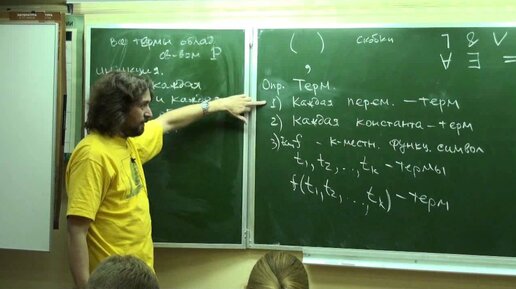 все термы облад.
св-вом P
индукция.
каждая
и каждая
( ) скобки
,
∨ & ¬
= E A
Опр. Терм.
1) Каждая перем. – терм
2) Каждая константа – терм
3) f – k-местн. функц. символ
t₁, t₂, ..., tₖ – термы
f(t₁, t₂, ..., tₖ) – терм